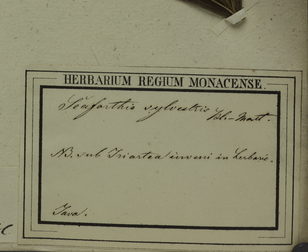 HERBARIUM REGIUM MONACENSE.
Seaforthia sylvestris Bl-Mart.
NB. sub Iriartea inveni in herbario.
Java.